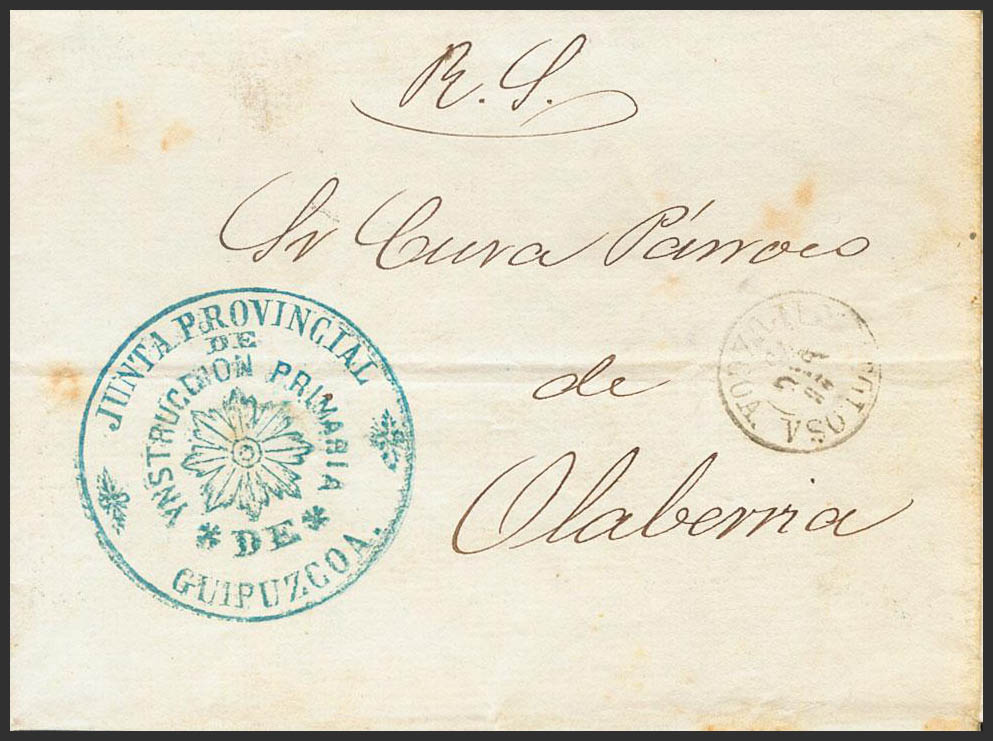 R. S.
Sr Cura Párroco
de
Olaberria
JUNTA PROVINCIAL
DE
YNSTRUCCION PRIMARIA
* DE *
GUIPUZCOA.
TOLOSA